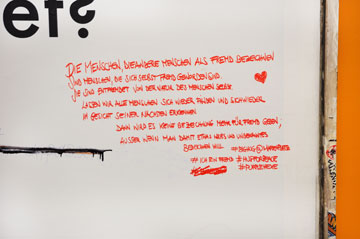 et?
DIE MENSCHEN, DIE ANDERE MENSCHEN ALS FREMD BEZEICHNEN
SIND MENSCHEN, DIE SICH SELBST FREMD GEWORDEN SIND.
SIE SIND ENTFREMDET VON DER NATUR DES MENSCHEN SELBST.
LASSEN WIR ALLE MENSCHEN SICH WIEDER FINDEN UND SICH WIEDER
IM GESICHT SEINER NÄCHSTEN ERKENNEN
DANN WIRD ES KEINE BEZEICHNUNG MEHR FÜR FREMD GEBEN;
AUSSER WENN MAN DAMIT ETWAS NEUES UND UNBEKANNTES
BEZEICHNEN WILL
ICH BIN FREMD